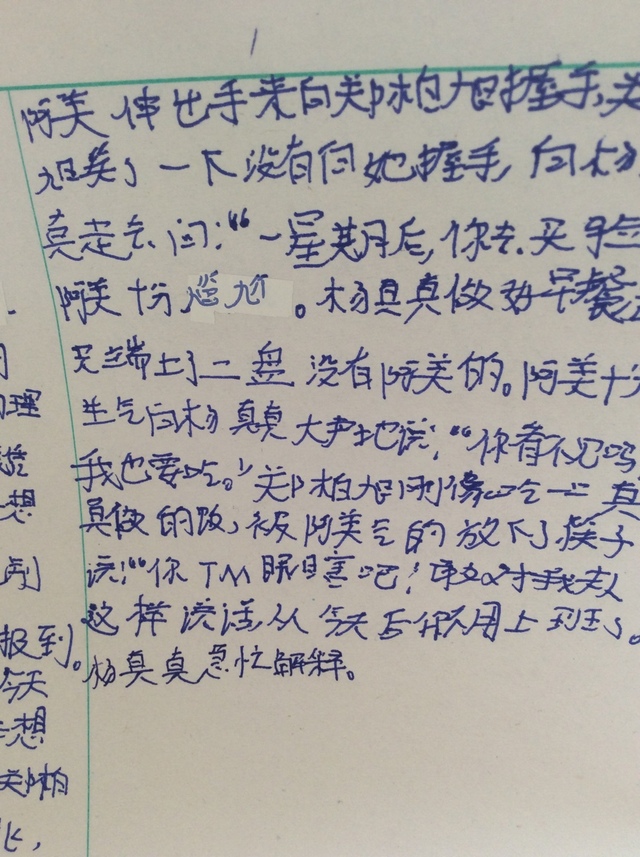 阿美伸出手来向郑柏旭握手,关
旭美了一下没有向她握手,向杨
真走去.问:“一星期后,你去.买
阿美十分尴尬。杨真真做好早餐
只端上了二盘没有阿美的。阿美十分
生气向杨真真大声地说:“你看不见吗
我也要吃。”郑柏旭刚想吃一
真做的饭,被阿美气的放下了筷子
说:“你TM眼瞎吧!对我夫人
这样说话,从今天后你不用上班了。
杨真真急忙解释。
理
想
报到。
今天
想
关柏